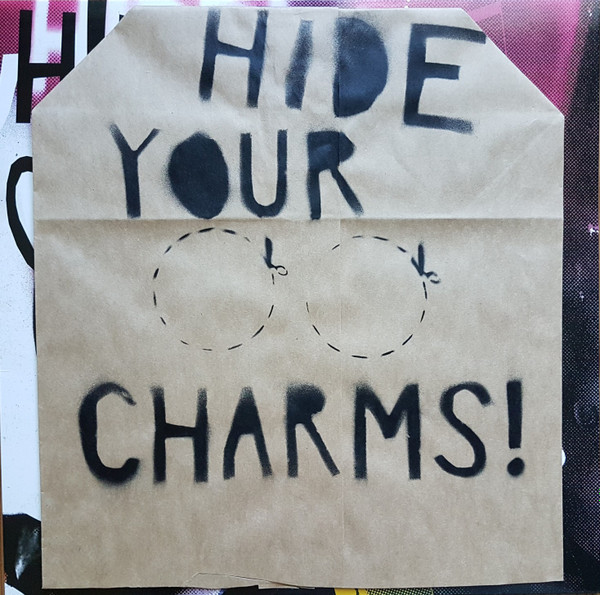 HIDE
YOUR
CHARMS!